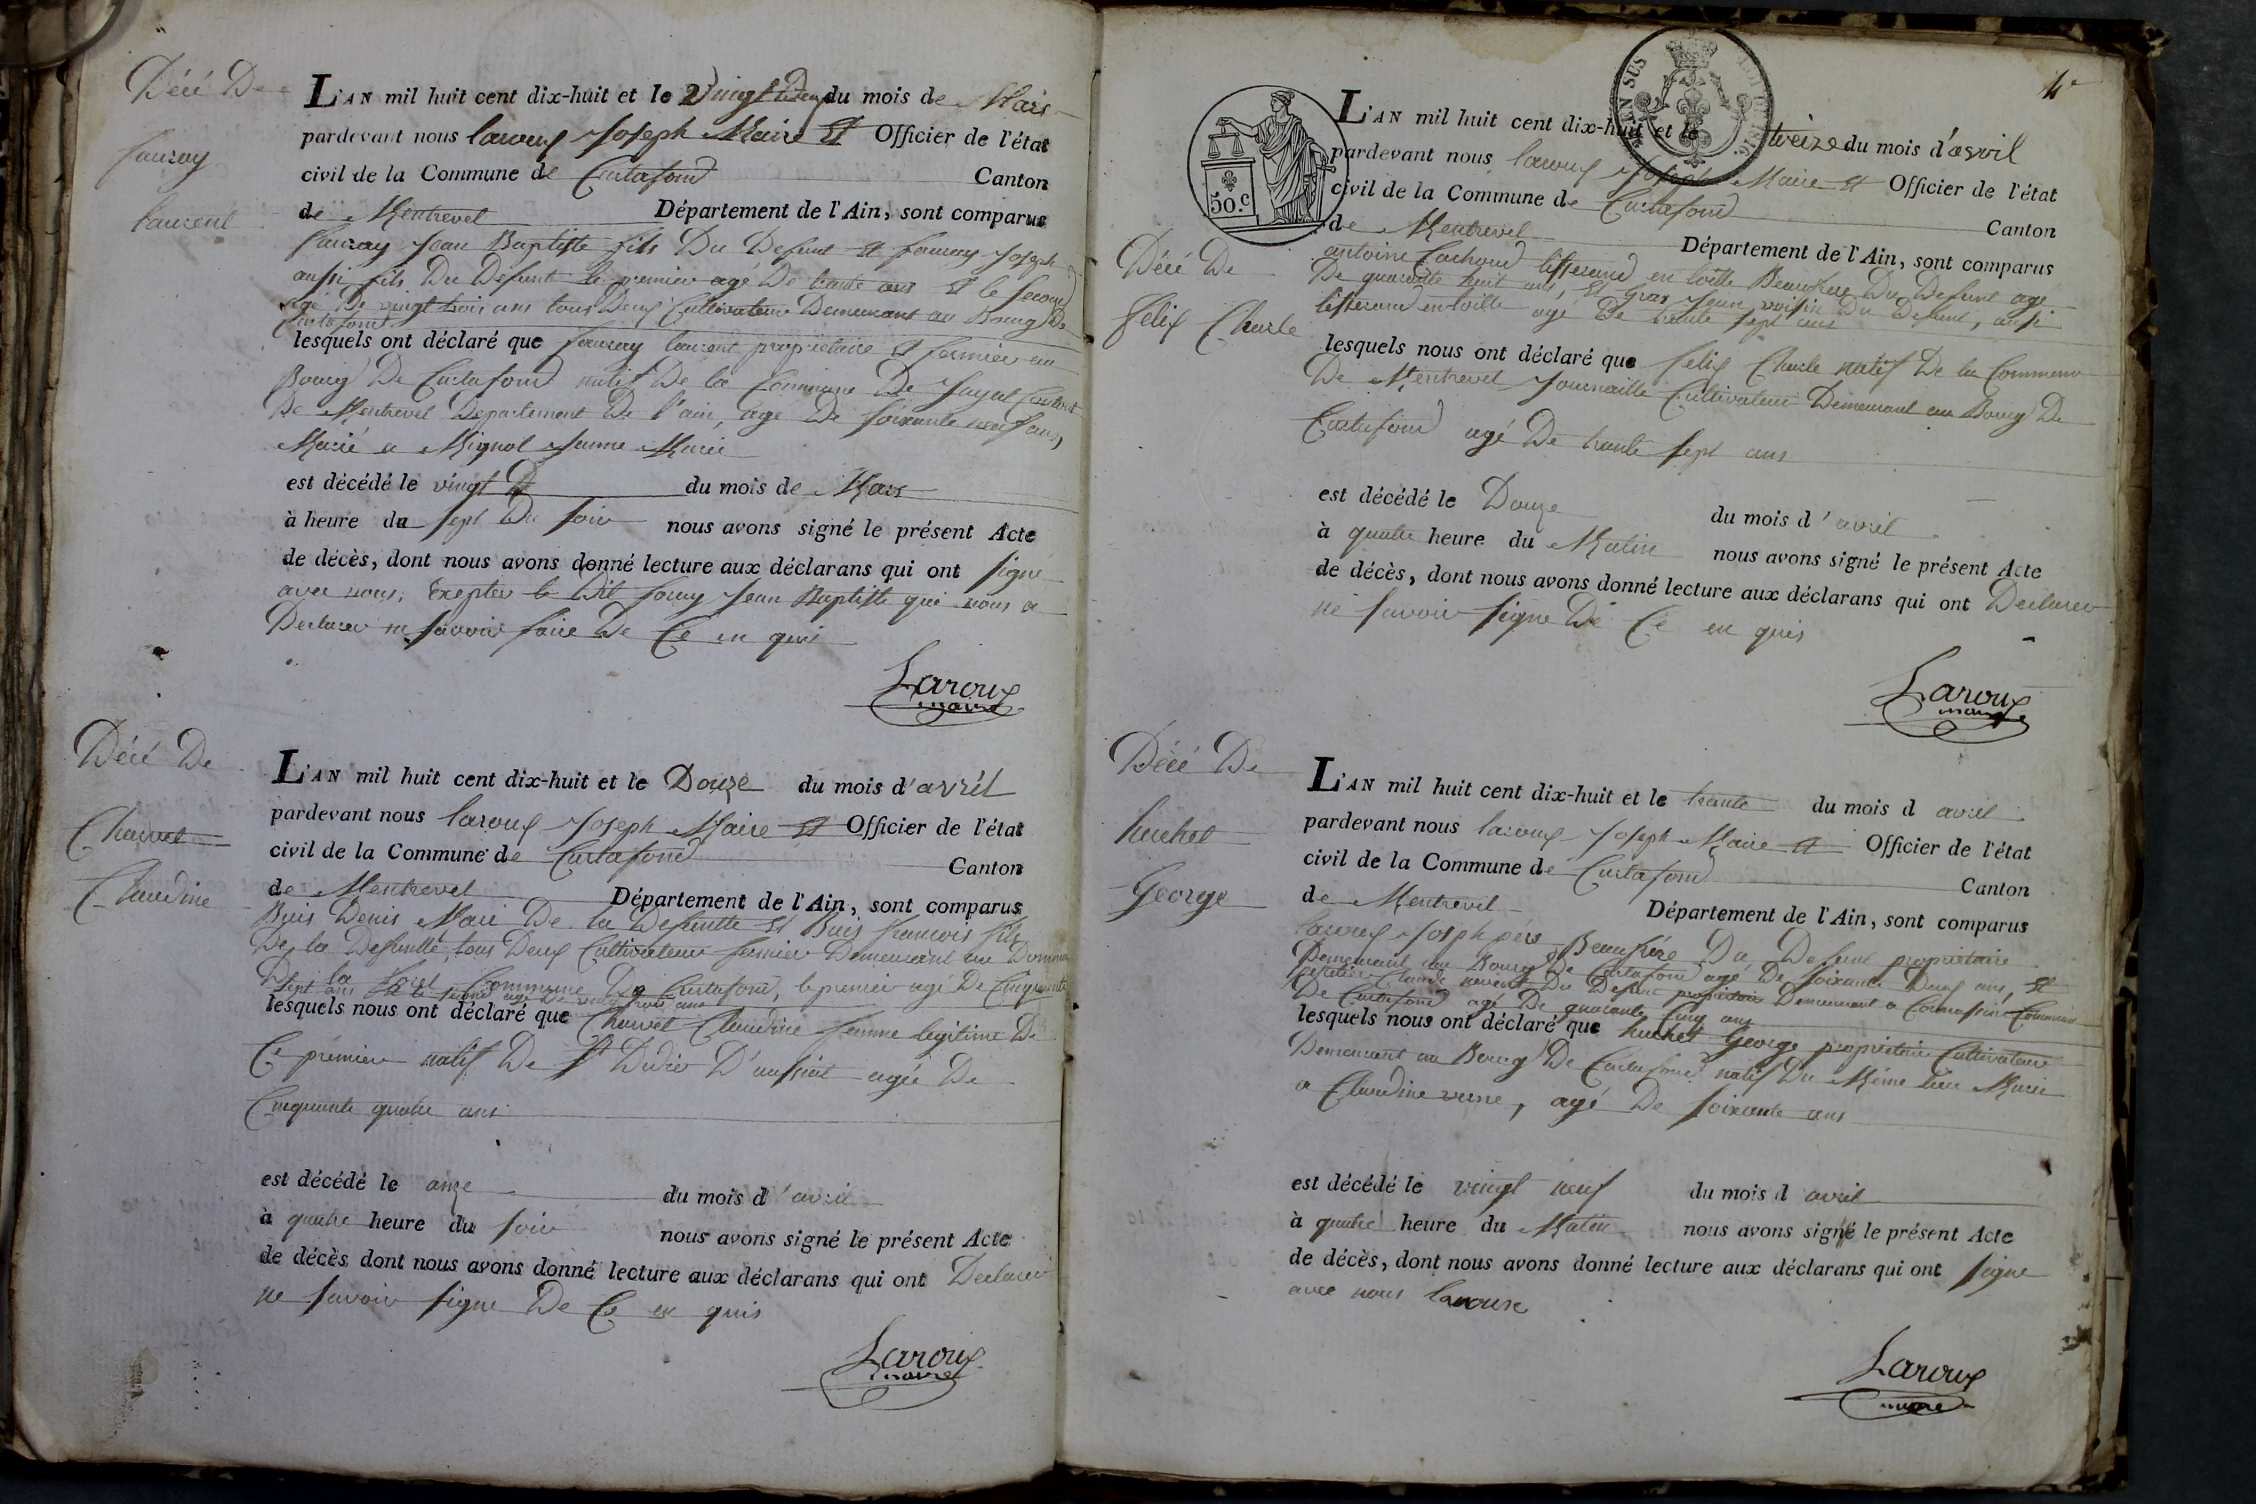 Décé De
fauray
laurent
L'AN mil huit cent dix-huit et le Vingt Deux du mois de Mars
pardevant nous laroux Joseph Maire et Officier de l'état
civil de la Commune de Curtafond Canton
de Montrevel Département de l'Ain, sont comparus
fauray Jean Baptiste fils Du Defunt et fauray Joseph
aussi fils Du Defunt le premier agé De trante ans et le second
agé De vingt trois ans tous Deux Cultivateur Demeurant au Bourg De
Curtafond
lesquels ont déclaré que fauray laurent propriétaire et fermier au
Bourg De Curtafond natif De la Commune De Jayat Canton
De Montrevel Departement De l'ain, agé De soixante neuf ans,
Marié a Mignot Jeanne Marie
est décédé le vingt du mois de Mars
à heure du sept Du soir nous avons signé le présent Acte
de décès, dont nous avons donné lecture aux déclarans qui ont signe
avec nous, Exepter le Dit Jean Baptiste qui nous a
Declarer ne savoir faire De Ce en quis
Laroux
maire
Décé De
Chanel
Claudine
L'AN mil huit cent dix-huit et le Douze du mois d'avril
pardevant nous laroux Joseph Maire et Officier de l'état
civil de la Commune de Curtafond Canton
de Montrevel Département de l'Ain, sont comparus
Buis Denis Mari De la Defuntte et Buis francois fils
De la Defuntte, tous Deux Cultivateur fermier Demeurant au Domaine
De la foret Commune De Curtafond, le premier agé De Cinquante
sept ans et le second agé De vingt trois ans
lesquels nous ont déclaré que Claudine femme legitime De
Ce premier natif De St Didier D'aussiat agée De
Cinquante quatre ans
est décédé le onze du mois d'avril
à quatre heure du soir nous avons signé le présent Acte
de décès dont nous avons donné lecture aux déclarans qui ont Declarer
ne savoir signe De Ce en quis
Laroux
maire
4e
EN SUS
LOI DE 1816.
50.c
L'AN mil huit cent dix-huit et le treize du mois d'avril
pardevant nous laroux Joseph Maire et Officier de l'état
civil de la Commune de Curtafond Canton
de Montrevel Département de l'Ain, sont comparus
Décé De
felix Charle
antoine tisserand en toille Beaufrere Du Defunt agé
De quarante huit ans, et Gras Jean voisin Du Defunt, aussi
tisserand en toille agé De trante sept ans
lesquels nous ont déclaré que felix Charle natif De la Commune
De Montrevel Journaille Cultivateur Demeurant au Bourg De
Curtafond agé De trante sept ans
est décédé le Douze du mois d'avril
à quatre heure du Matin nous avons signé le présent Acte
de décès, dont nous avons donné lecture aux déclarans qui ont Declarer
ne savoir signe De Ce en quis
Laroux
maire
Décé De
huchet
George
L'AN mil huit cent dix-huit et le trante du mois d avril
pardevant nous laroux Joseph Maire et Officier de l'état
civil de la Commune de Curtafond Canton
de Montrevel Département de l'Ain, sont comparus
laroux Joseph père Beaufrère Du Defunt propriétaire
Demeurant au Bourg De Curtafond agé De soixante Deux ans, et
Claude neveu Du Defunt propriétaire Demeurant a Cormassine Commune
De Curtafond agé De quarante Cinq ans
lesquels nous ont déclaré que huchet George propriétaire Cultivateur
Demeurant au Bourg De Curtafond natif Du Même lieu Marié
a Claudine verne, agé De soixante ans
est décédé le vingt neuf du mois d avril
à quatre heure du Matin nous avons signé le présent Acte
de décès, dont nous avons donné lecture aux déclarans qui ont signe
avec nous laroux
Laroux
maire